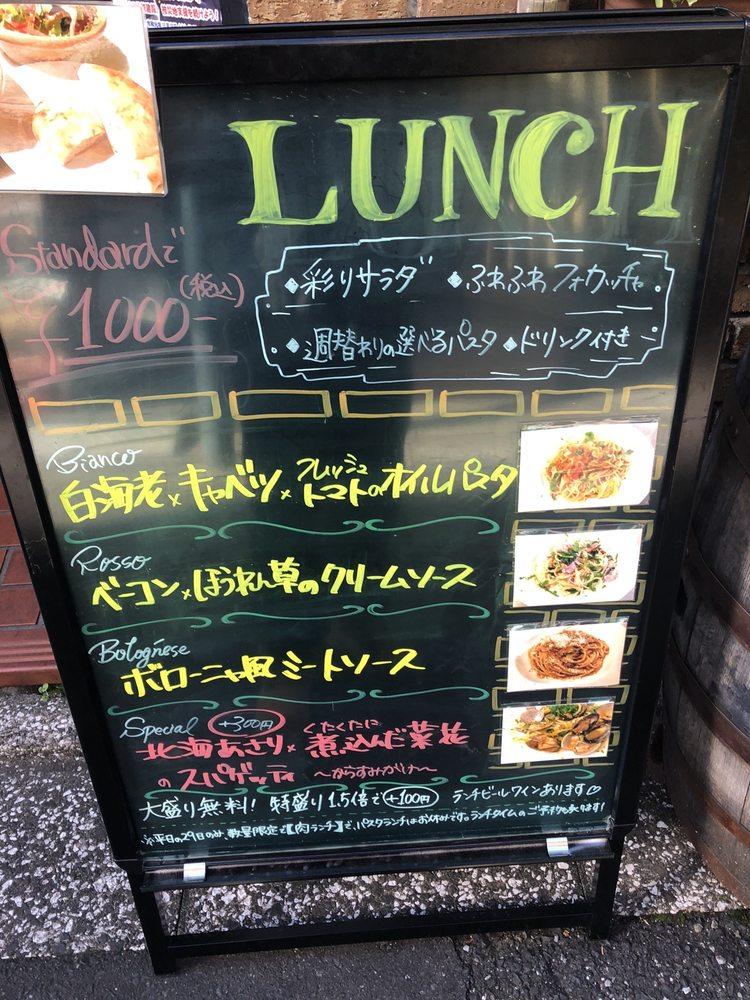 LUNCH
Standardで
¥1000-(税込)
◆彩りサラダ ◆ふわふわフォカッチャ
◆週替わりの選べるパスタ ◆ドリンク付き
Bianco
白海老×キャベツ×フレッシュトマトのオイルパスタ
Rosso
ベーコン×ほうれん草のクリームソース
Bolognese
ボローニャ風ミートソース
Special +300円
北海あさり×くたくたに煮込んだ菜花
のスパゲッティ 〜からすみがけ〜
大盛り無料! 特盛り1.5倍で+100円 ランチビールワインあります♡
※平日の29日のみ、数量限定で【肉ランチ】で、パスタランチはお休みです。ランチタイムのご予約も承ります!